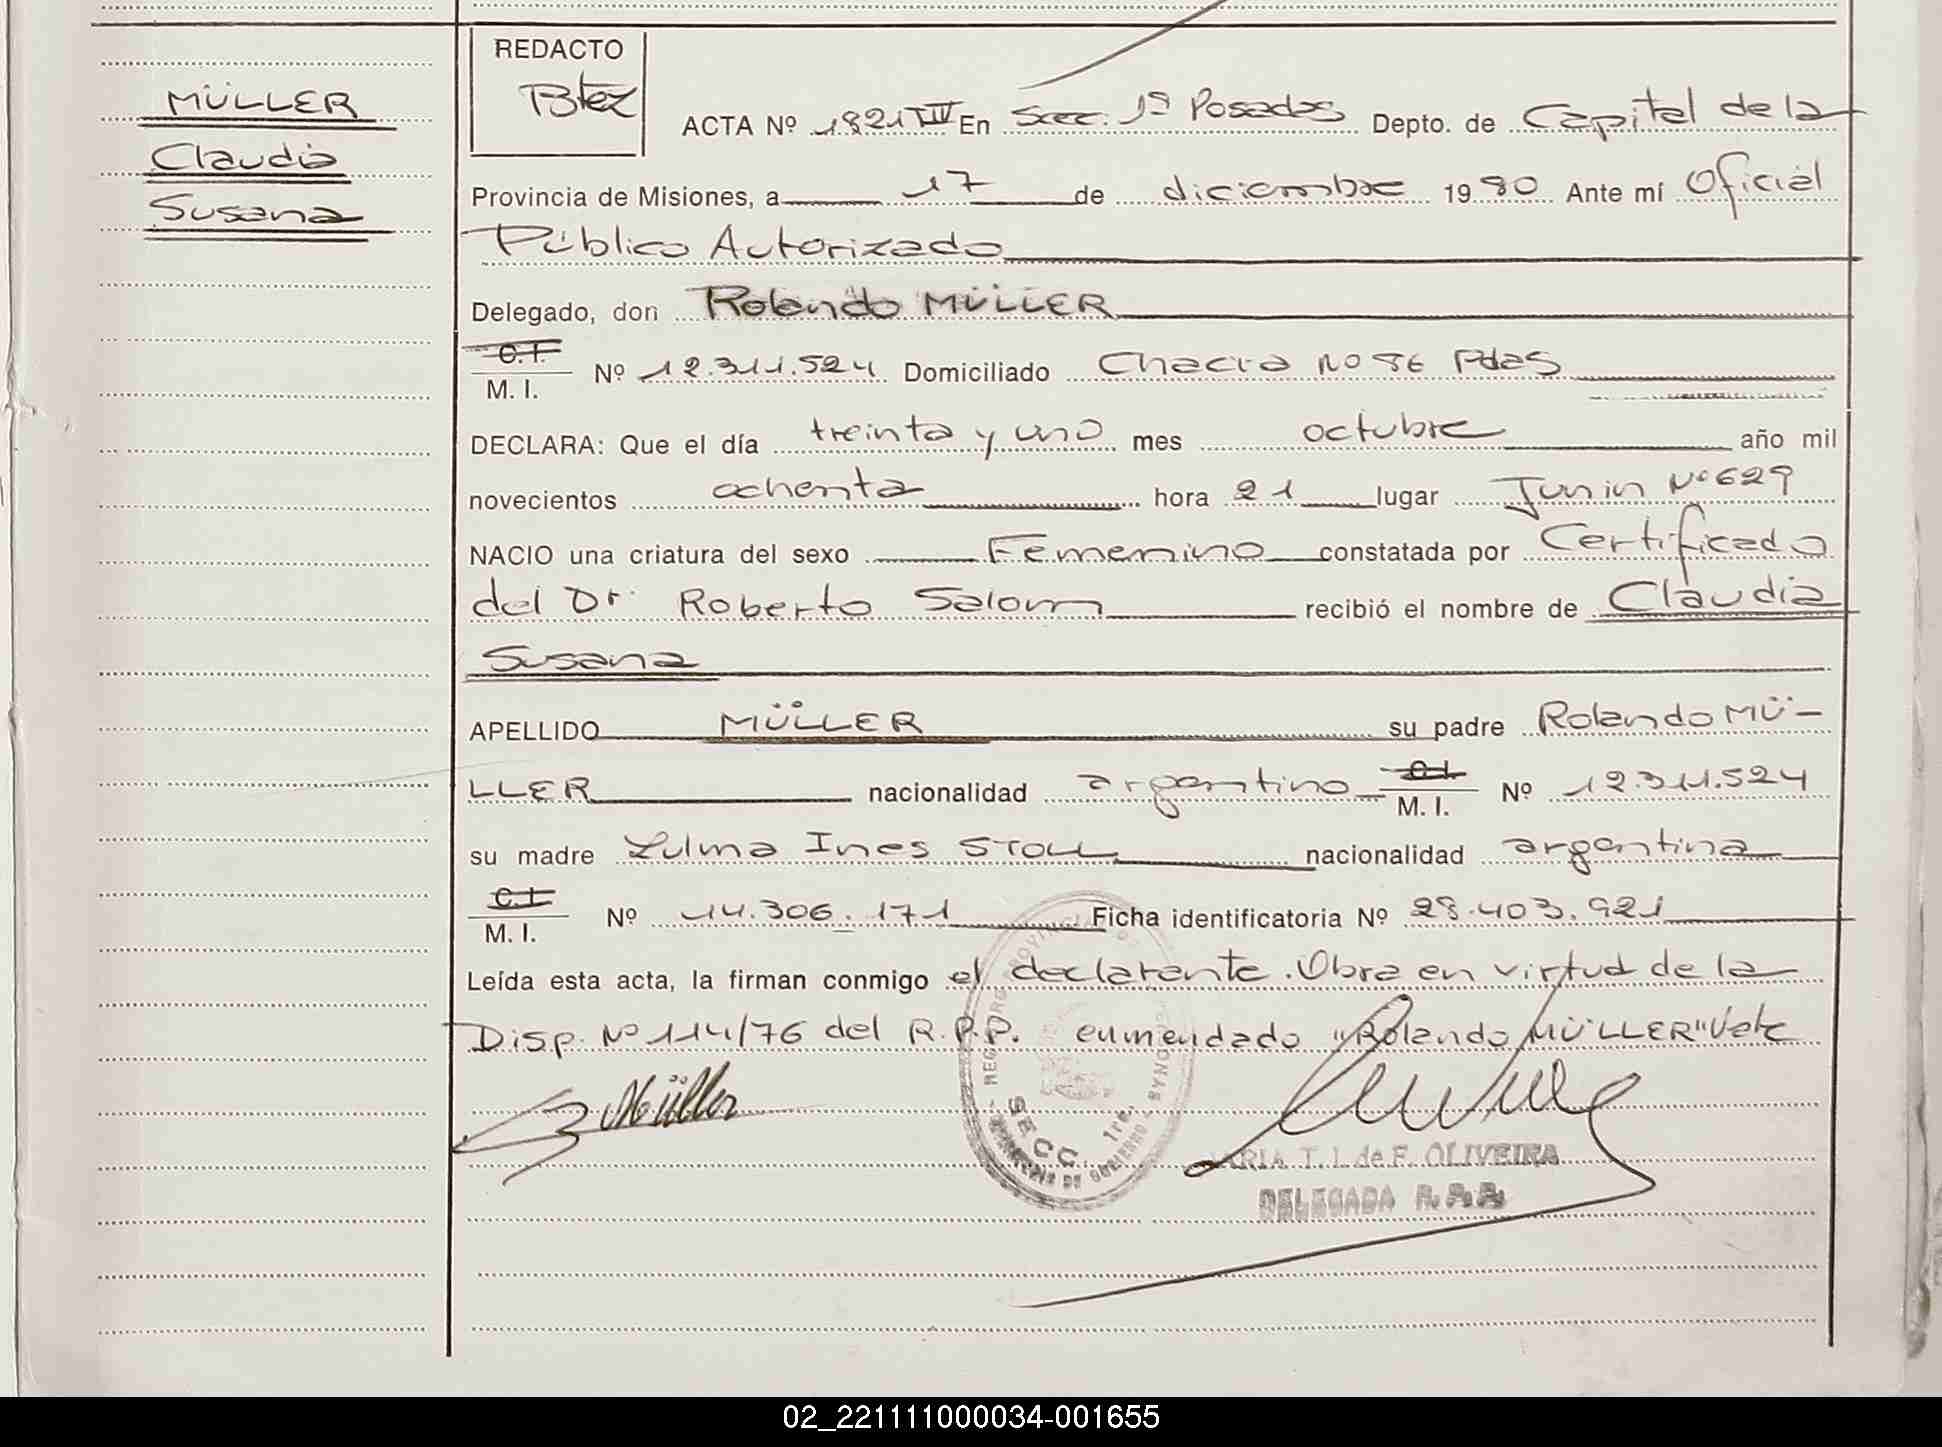 MÜLLER
Claudia
Susana
REDACTO
Btez
ACTA Nº 1821 TIV En Secc. 1ª Posadas Depto. de Capital de la
Provincia de Misiones, a 17 de diciembre 1980 Ante mí Oficial
Público Autorizado
Delegado, don Rolando MÜLLER
C.I.
M. I. Nº 12.311.524 Domiciliado Chacra Nº 86 Pdas
DECLARA: Que el día treinta y uno mes octubre año mil
novecientos ochenta hora 21 lugar Junin Nº 629
NACIO una criatura del sexo Femenino constatada por Certificado
del Dr. Roberto Salom recibió el nombre de Claudia
Susana
APELLIDO MÜLLER su padre Rolando MÜ-
LLER nacionalidad argentino C.I. M. I. Nº 12.311.524
su madre Zulma Ines STOLL nacionalidad argentina
C.I.
M. I. Nº 14.306.171 Ficha identificatoria Nº 28.403.921
Leída esta acta, la firman conmigo el declarante. Obra en virtud de la
Disp. Nº 114/76 del R.P.P. enmendado "Rolando MÜLLER" Vale
Müller
SECC. 1ra.
MARIA T. I. de F. OLIVEIRA
DELEGADA R.P.P.
02_221111000034-001655